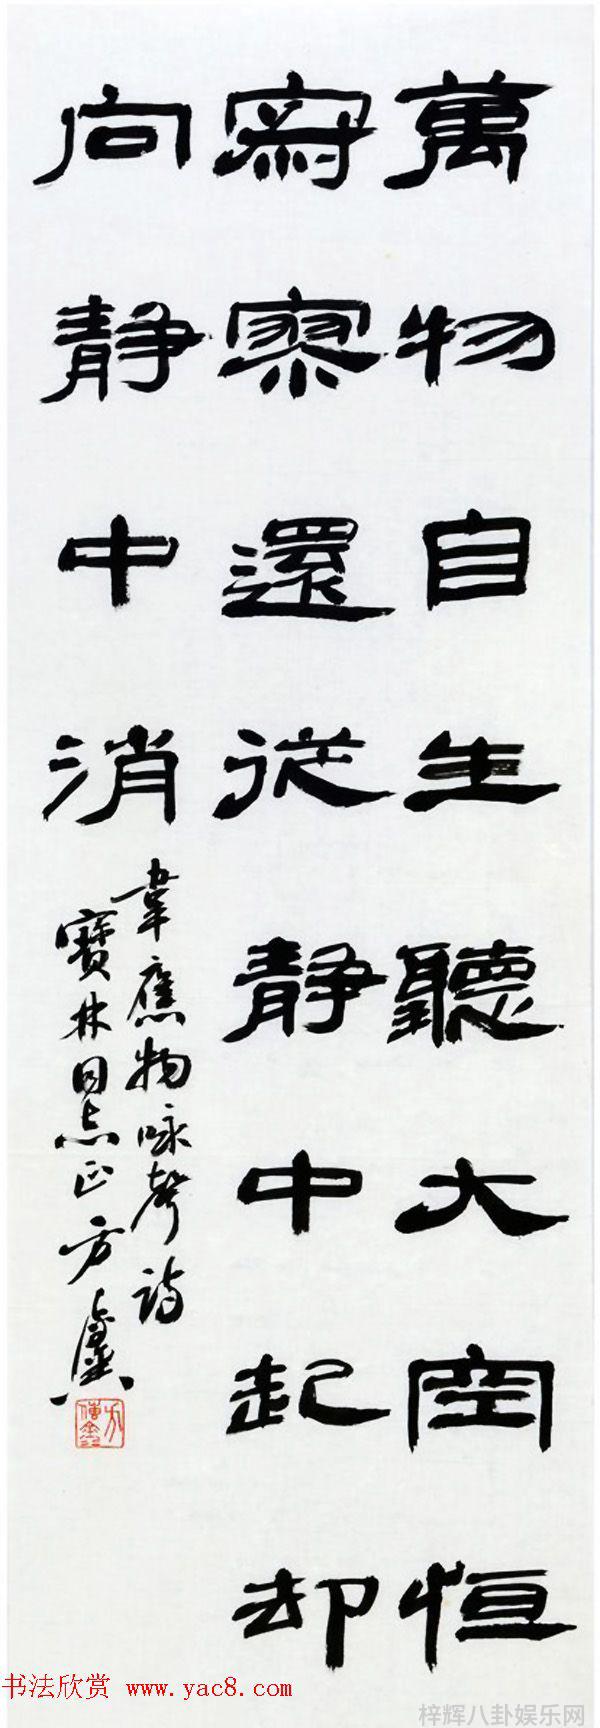 萬物自生聽大空恒
寂寥還從静中起却
向静中消
韋應物咏聲詩
寶林同志正方
书法欣赏 www.yac8.com
梓辉八卦娱乐网